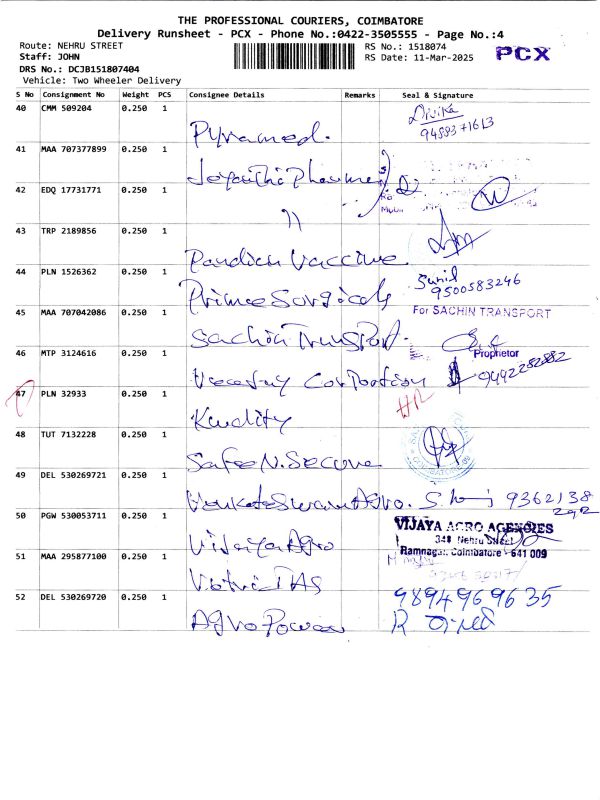 THE PROFESSIONAL COURIERS, COIMBATORE
Delivery Runsheet - PCX - Phone No.:0422-3505555 - Page No.:4
Route: NEHRU STREET
RS No.: 1518074
Staff: JOHN
RS Date: 11-Mar-2025
PCX
DRS No.: DCJB151807404
Vehicle: Two Wheeler Delivery
S No Consignment No Weight PCS Consignee Details Remarks Seal & Signature
40 CMM 509204 0.250 1
Pyramed.
9488371613
41 MAA 707377899 0.250 1
42 EDQ 17731771 0.250 1
"
43 TRP 2189856 0.250 1
Pandian Vaccine
44 PLN 1526362 0.250 1
Prince Surgicals
Sunil
9500583246
45 MAA 707042086 0.250 1
Sachin Transport.
For SACHIN TRANSPORT
Proprietor
46 MTP 3124616 0.250 1
Corporation
9442282882
47 PLN 32933 0.250 1
48 TUT 7132228 0.250 1
Safe N. Secure
49 DEL 530269721 0.250 1
Venkateswara Agro.
9362138
292
50 PGW 530053711 0.250 1
Vijaya Agro
VIJAYA AGRO AGENCIES
348 Nehru Street
Ramnagar, Coimbatore - 641 009
51 MAA 295877100 0.250 1
52 DEL 530269720 0.250 1
Agro Power
9894969635